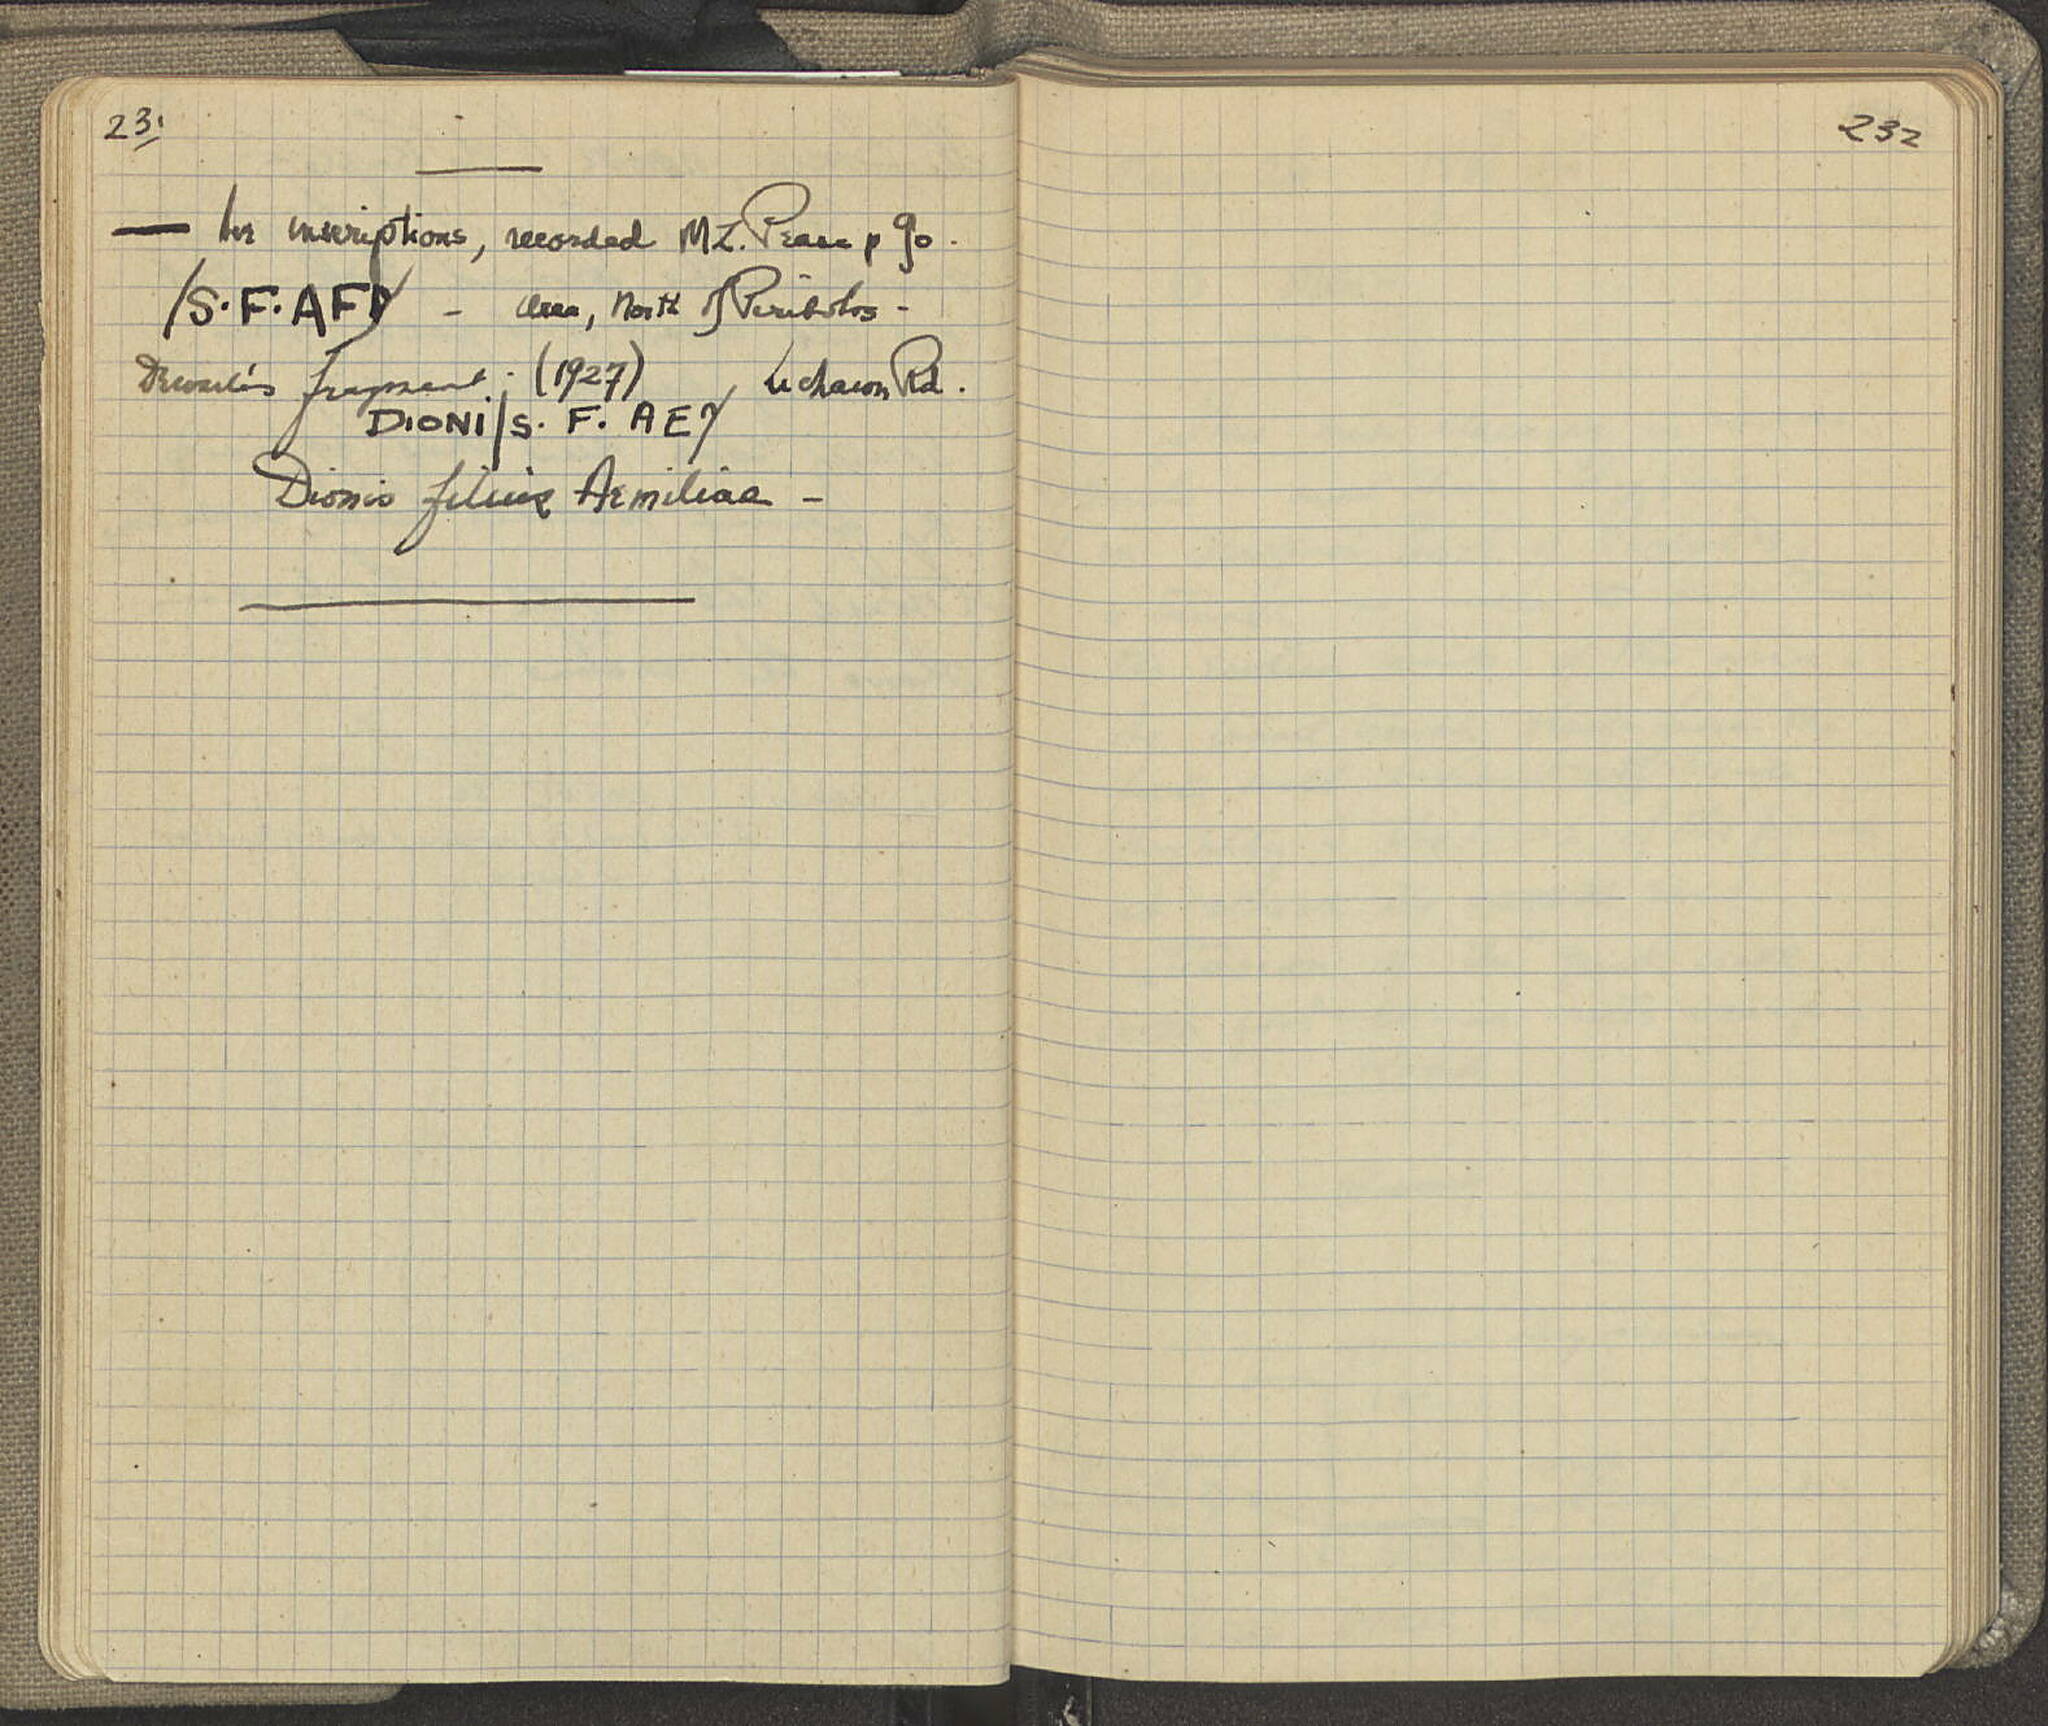 231
— inscriptions, recorded M Z. Pease p 90.
/S. F. AE/ — area, North of Peribolos -
fragment. (1927) Lechaeon Rd.
DIONI/S. F. AE/
Dionis filius Aemiliae -
232